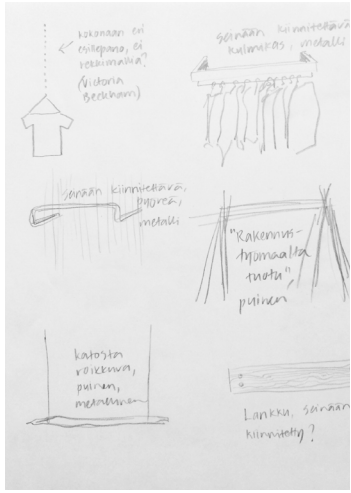 kokonaan eri
esillepano, ei
rekkimallia?
(Victoria
Beckham)
seinään kiinnitettävä
kulmikas, metalli
seinään kiinnitettävä,
pyöreä,
metalli
"Rakennus-
työmaalta
tuotu",
puinen
katosta
roikkuva,
puinen,
metallinen
Lankku, seinään
kiinnitetty?